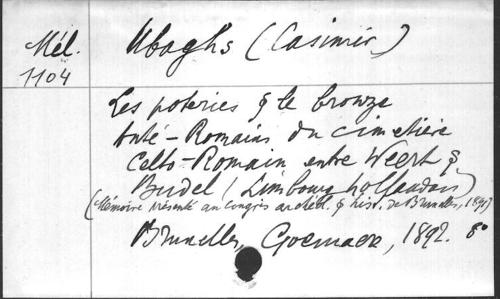 Mél.
1104
Ubaghs (Casimir)
Les poteries & le bronze
Anté-Romains du cimetière
Celto-Romain entre Weert &
Budel (Limbourg hollandais)
(Mémoire présenté au Congrès archéol. & hist. de Bruxelles, 1891)
Bruxelles, Goemaere, 1892. 8°